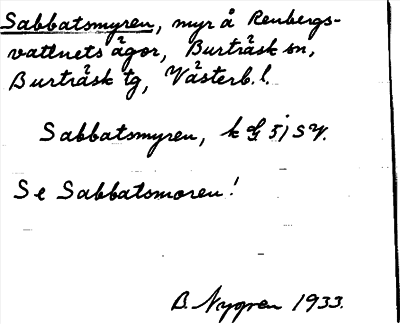 Sabbatsmyren, myr å Renbergs-
vattnets ägor, Burträsk sn,
Burträsk tg, Västerb. l.
Sabbatsmyren, k 5j SV.
Se Sabbatsmoren!
B. Nygren 1933.